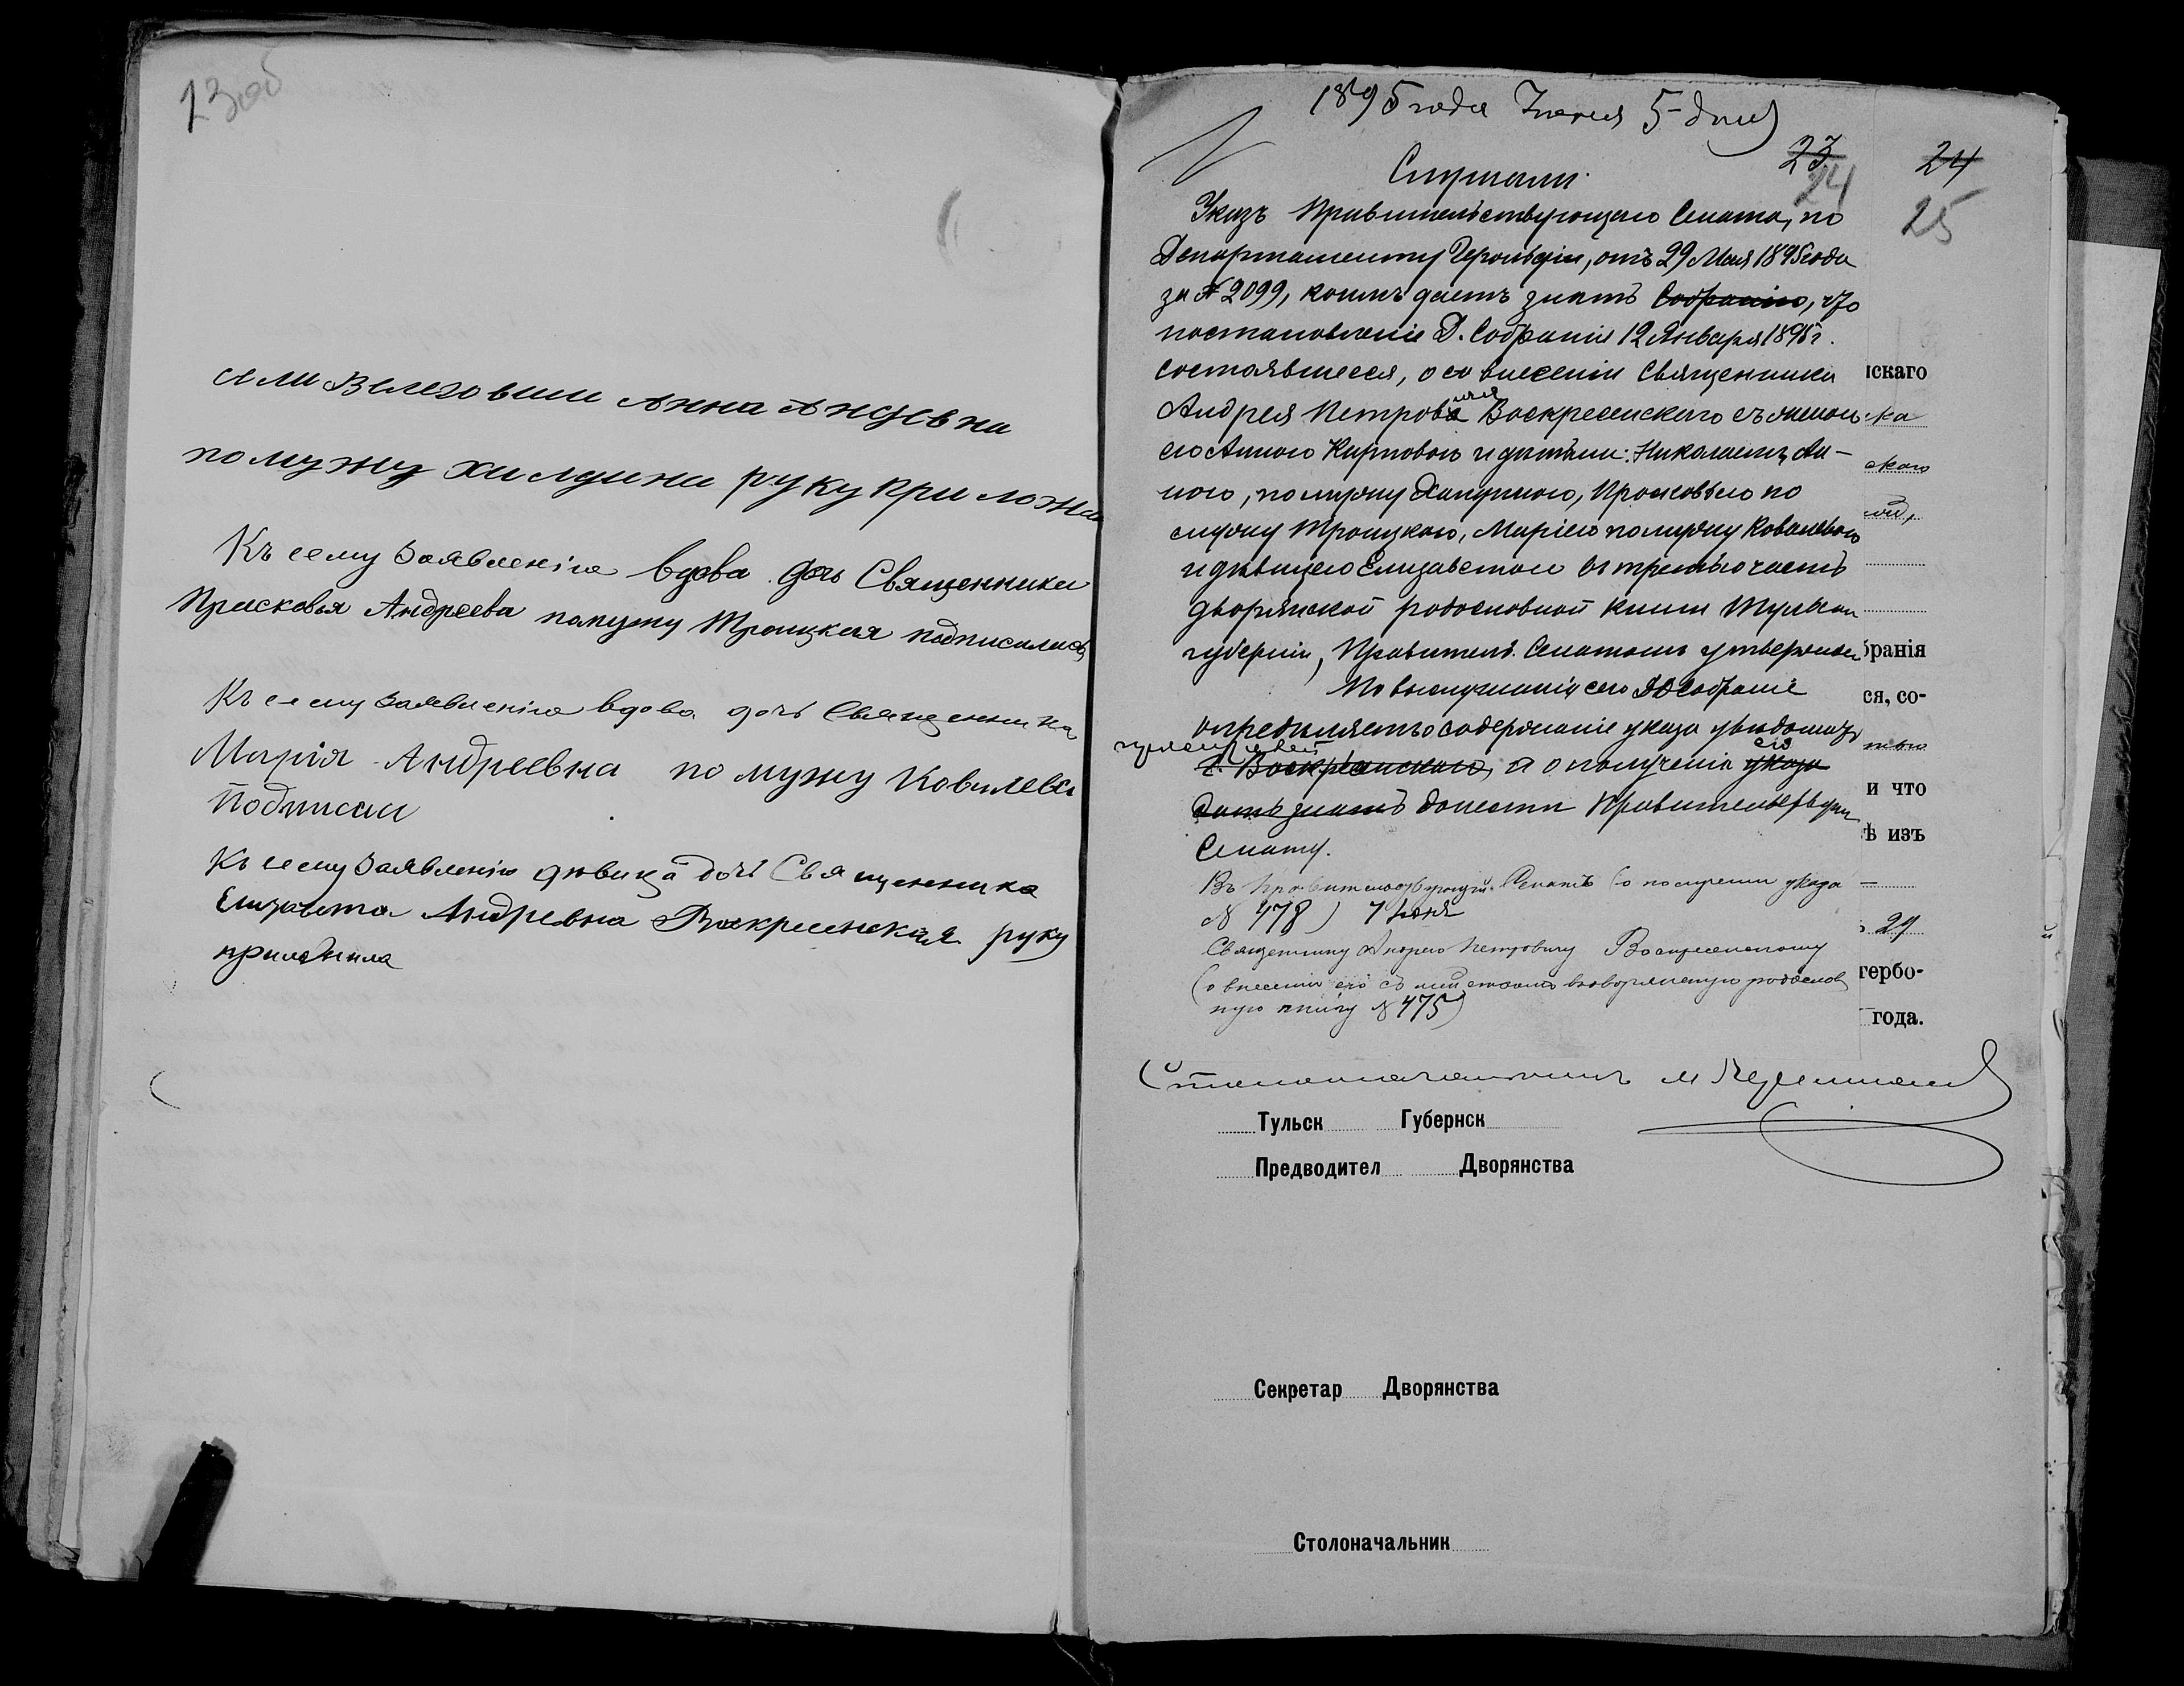 23об
Анна Андревна
по мужу руку приложила
Къ сему Заявленію вдова дочь Священника
Прасковья Андреева по мужу Троицкая подписалась
Къ сему заявленію вдова дочь Священника
Марія Андреевна по мужу Ковалева
подписал
Къ сему Заявленію дѣвица дочь Священника
Елизавета Андревна Воскресенская руку
приложила
1895 года Іюня 5 дня
23 24
24 25
Слушали:
Указъ Правительствующаго Сената, по
Департаменту Герольдіи, отъ 29 Мая 1895 года
за № 2099, коимъ даетъ знать Собранію, что
постановленіе Д. Собранія 12 Января 1895 г.
состоявшееся, о внесеніи Священника
Андрея Петрова Воскресенскаго съ женою
его Анною Карповою и дѣтьми: Николаемъ, Ан-
ною, по мужу Халдиною, Просковьею по
мужу Троицкою, Маріею по мужу Ковалевою
и дѣвицею Елизаветою въ третью часть
дворянской родословной книги Тульской
губерніи, Правител. Сенатомъ утверждено
По выслушаніи сего Д Собраніе
опредѣляетъ о содержаніи указа увѣдомить
г. Воскресенскаго, а о полученіи указа
его
дать знать донести Правительствующ
Сенату.
Въ Правительствующій Сенатъ (о полученіи указа
№ 478) 7 Іюня
Священнику Андрею Петровичу Воскресенскому
(о внесеніи его съ семействомъ въ дворянскую родослов
ную книгу № 475)
Столоначальникъ М
Тульск Губернск
Предводител Дворянства
Секретар Дворянства
Столоначальник
скаго
ка
скаго
бранія
ся, со-
и что
ѣ изъ
29
гербо-
года.